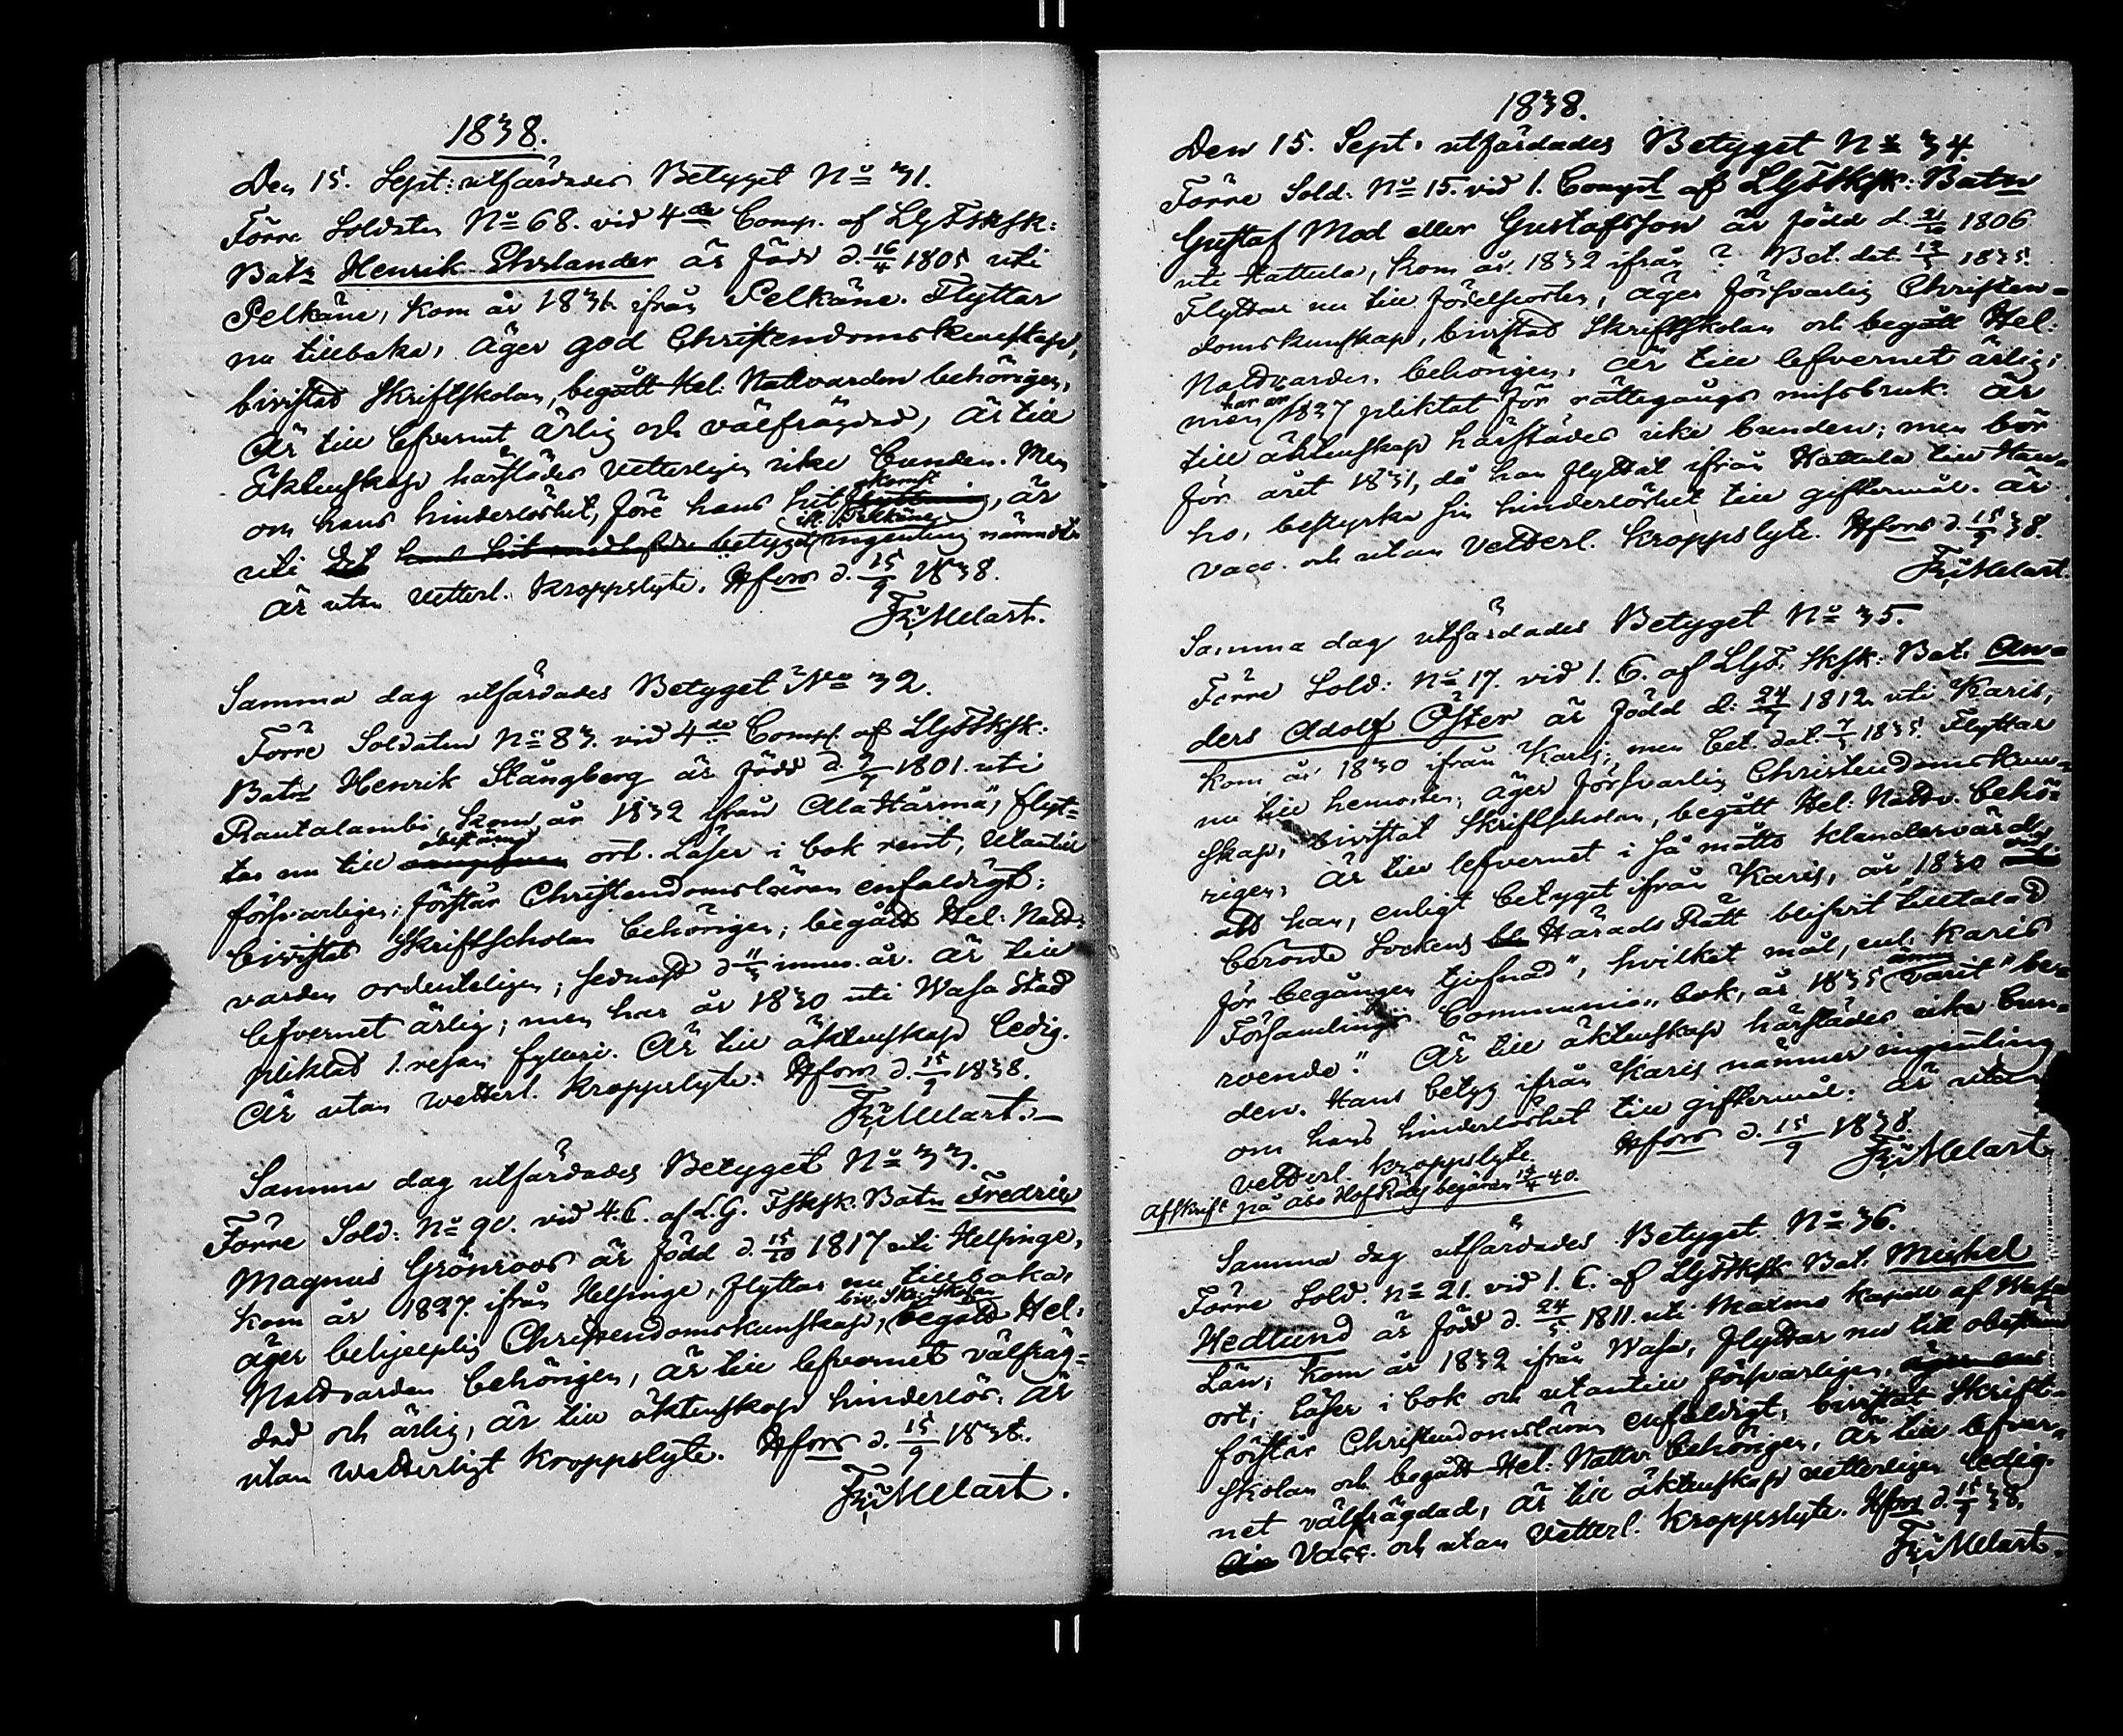 1838.
Den 15. Sept: utfärdades Betyget No 31.
Förre Soldaten No 68. vid 4de Comp. af LGFskSk:
Batn Henrik Ehrlander är född d. 16/4 1805 uti
Pelkäne, kom år 1831 ifrån Pelkäne. Flyttar
nu tillbaka, äger god Christendomskunskap,
bivistad Skriftskolan, begått Hel: Nattvarden behörigen,
är till lefvernet ärlig och välfrägdad, är till
äktenskap härstädes vetterligen icke bunden. Men
om hans hinderlöshet, före hans hitkomst, är
uti det hans hit medhafde betyget fr. Pelkäne ingenting nämndt.
är utan vetterl. kroppslyte. Hfors d. 15/9 1838.
Fr: Melart.
Samma dag utfärdades Betyget No 32.
Förre Soldaten No 83. vid 4de Comp. af LGFSkSk:
Batn Henrik Stångberg är född d. 9/7 1801. uti
Rautalambi, kom år 1832 ifrån Ala Härmä, flyt=
tar nu till obestämd ort. Läser i bok rent, utantill
försvarligen; förstår Christendomsläran enfaldigt;
bivistat Skriftscholan behörigen; begått Hel: Natt=
varden ordenteligen, sednast d. 11/3 innev. år. är till
lefvernet ärlig; men har år 1830 uti Wasa Stad
pliktad 1. resan fylleri. Är till äktenskap ledig.
Är utan wetterl. kroppslyte. Hfors d. 15/9 1838.
Fr: Melart.—
Samma dag utfärdades Betyget No 33.
Förre Sold: No 90. vid 4. C. af L.G. FskSk. Batn Fredric
Magnus Grönroos är född d. 15/10 1817 uti Helsinge,
kom år 1827. ifrån Helsinge, flyttar nu tillbaka,
äger behjelplig Christendomskunskap, biv. Skr: skolan begått Hel:
Nattvarden behörigen, är till lefvernet välfräg=
dad och ärlig, är till äktenskap hinderlös. är
utan wetterligt kroppslyte. Hfors d. 15/9 1838.
Fr: Melart.
1838.
Den 15. Sept. utfärdades Betyget No 34.
Förre Sold: No 15. vid 1. Comp. af LGFSkSk: Batn
Gustaf Mod eller Gustafsson är född d. 1806
uti Hattula, kom år 1832 ifrån ? Bet. dat. 1835.
Flyttar nu till födelseorten, äger försvarlig Christen=
domskunskap, bivistad Skriftskolan och begått Hel:
Nattvarden, behörigen. är till lefvernet ärlig;
men har år 1837 pliktat för rättegångs missbruk. är
till äktenskap härstädes icke bunden; men bör
för året 1831, då han flyttat ifrån Hattula till Hau=
ho, bestyrka sin hinderlöshet till giftermål. är
vacc. och utan vetterl. kroppslyte. Hfors d. 15/9 38.
Fr: Melart.
Samma dag utfärdades Betyget No 35.
Förre Sold: No 17. vid 1. C. af LGF. SkSk: Bat. An=
ders Adolf Öster är född d: 24/7 1812. uti Karis,
kom år 1830 ifrån Karis; men bet. dat. 1835. Flyttar
nu till hemorten, äger försvarlig Christendomskun=
skap, bivistat Skriftscholan, begått Hel: Nattv. behö=
rigen, är till lefvernet i så måtto klandervärdig
att han, enligt betyget ifrån Karis, år 1830 vid
berörde Sockens Härads Rätt blifvit tilltalad
för begången tjufnad", hvilket mål, enl. Karis
Församlings Communions bok, år 1835 ännu varit "be=
roende." Är till äktenskap härstädes icke bun=
den. Hans betyg ifrån Karis nämner ingenting
om hans hinderlöshet till giftermål. är utan
vetterl. kroppslyte. Hfors d. 15/9 1838.
Fr: Melart
Afskrift på Åbo HofRätts begäran 40.
Samma dag utfärdades Betyget No 36.
Förre Sold. No 21. vid 1. C. af LGFSkSk Bat. Michel
Hedlund är född d. 24/5 1811. uti Maxmo kapell af Wasa
Län; kom år 1832 ifrån Wasa, flyttar nu till obestämd
ort; läser i bok och utantill försvarligen,
förstår Christendomsläran enfaldigt, bivistat Skrift=
skolan och begått Hel: Nattv. behörigen, är till lefver=
net välfrägdad, är till äktenskap vetterligen ledig.
är Vacc. och utan vetterl. kroppslyte. Hfors d. 15/9 38.
Fr: Melart.